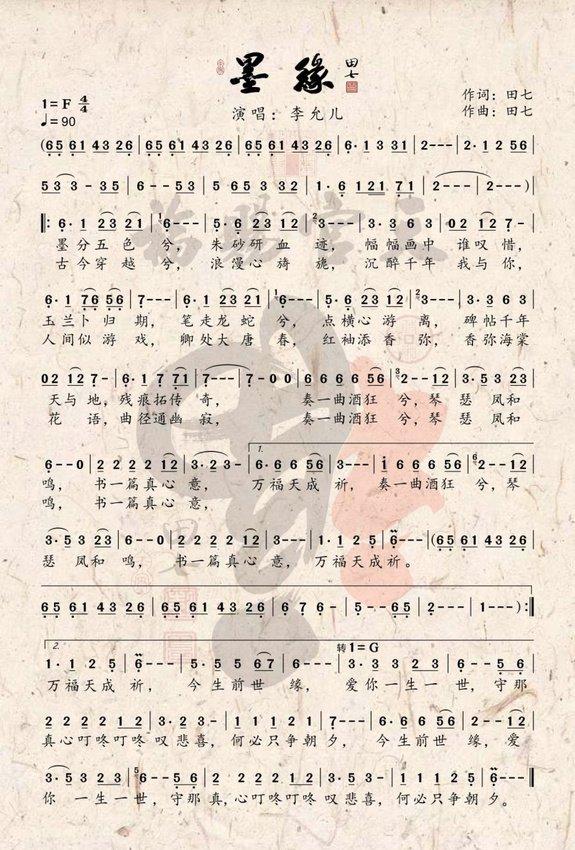 墨缘
田七
演唱：李允儿
1=F 4/4
♩=90
作词：田七
作曲：田七
(65 61 43 26 | 65 61 43 26 | 65 61 43 26 | 6· 1 3 31 | 2 - - - | 2· 1 2 56 |
53 3 - 35 | 6 - - 53 | 5 65 3 32 | 1· 6 121 71 | 2 - - - | 2 - - - ) |
‖: 6· 1 23 21 | 6 - - - | 5· 3 23 21 | 3 - - - | 3· 3 6 3 | 02 12 7 - |
墨分五色兮，朱砂研血迹，幅幅画中谁叹惜，
古今穿越兮，浪漫心旖旎，沉醉千年我与你，
6· 1 76 56 | 7 - - - | 6· 1 23 21 | 6 - - - | 5· 1 65 12 | 3 - - - | 3· 3 6 3 |
玉兰卜归期，笔走龙蛇兮，点横心游离，碑帖千年
人间似游戏，卿处大唐春，红袖添香弥，香弥海棠
02 12 7 - | 6· 1 7 71 | 7 - - - | 7 - 0 0 | 6 6 6 6 56 | 2 - - 12 | 3· 5 3 23 |
天与地，残痕拓传奇，奏一曲酒狂兮，琴瑟凤和
花语，曲径通幽寂，奏一曲酒狂兮，琴瑟凤和
6 - - 0 | 2 2 2 2 12 | 3· 2 3 - | 6· 6 6 56 | 3 - - - | i 6 6 6 56 | 2 - - 12 |
1.
鸣，书一篇真心意，万福天成祈，奏一曲酒狂兮，琴
鸣，书一篇真心意，
3· 5 3 23 | 6 - - 0 | 2 2 2 2 12 | 3· 5 3 - | 1· 1 2 5 | 6 - - - | (65 61 43 26 |
瑟凤和鸣，书一篇真心意，万福天成祈。
65 61 43 26 | 65 61 43 26 | 6 7 6 - | 5 - - 65 | 2 - - - | 1 - - - ) :‖
2.
转1=G
1· 1 2 5 | 6 - - - | 5· 5 5 67 | 6 - - - | 3· 3 3 23 | 2 - - 56 |
万福天成祈，今生前世缘，爱你一生一世，守那
2 2 2 2 12 | 3· 2 3 1 | 2 2 2 12 | 7 - - - | 6· 6 6 56 | 2 - - 12 |
真心叮咚叮咚叹悲喜，何必只争朝夕，今生前世缘，爱
3· 5 3 23 | 6 - - 56 | 2 2 2 2 12 | 3· 2 3 1 | 2 2 1 2 5 | 6 - - - ‖
你一生一世，守那真，心叮咚叮咚叹悲喜，何必只争朝夕。